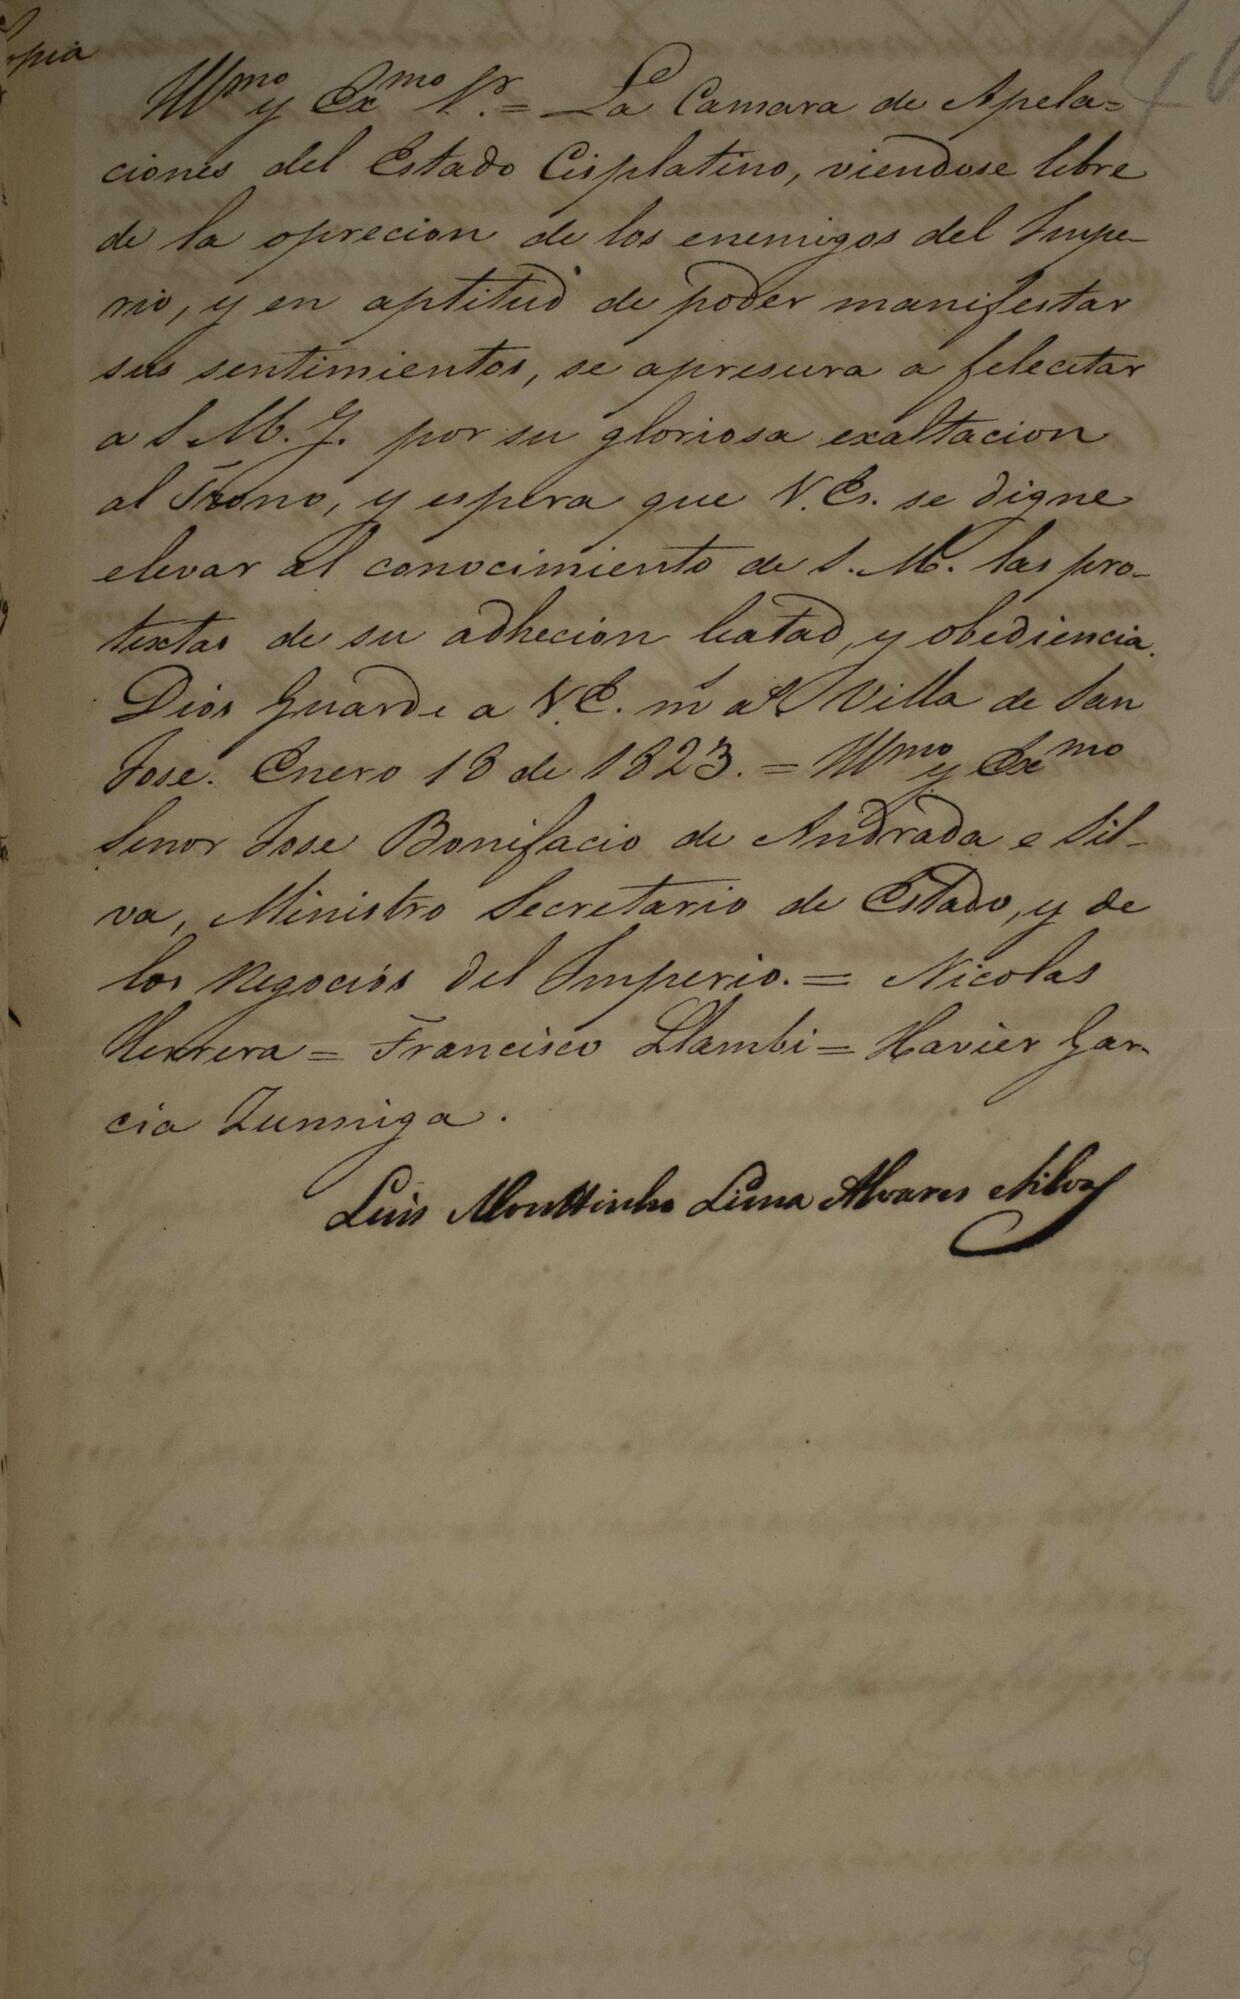 Copia
Illmo y Exmo Sr. = La Camara de Apela=
ciones del Estado Cisplatino, viendose lebre
de la oprecion de los enemigos del Impe-
rio, y en aptitud de poder manifestar
sus sentimientos, se apresura a felecitar
a S M. I. por su gloriosa exaltacion
al Trono, y espera que V. Es. se digne
elevar al conocimiento de S. M. las pro-
textas de su adhecion leatad, y obediencia.
Dios Guarde a V. E. ms as Villa de San
Jose. Enero 18 de 1823. = Illmo y Exmo
Senor Jose Bonifacio de Andrada e Sil-
va, Ministro Secretario de Estado, y de
los Negocios del Imperio. = Nicolas
Herrera = Francisco Llambi = Xavier Gar-
cia Zunniga.
Luis Mouttinho Lima Alvares Silva
59